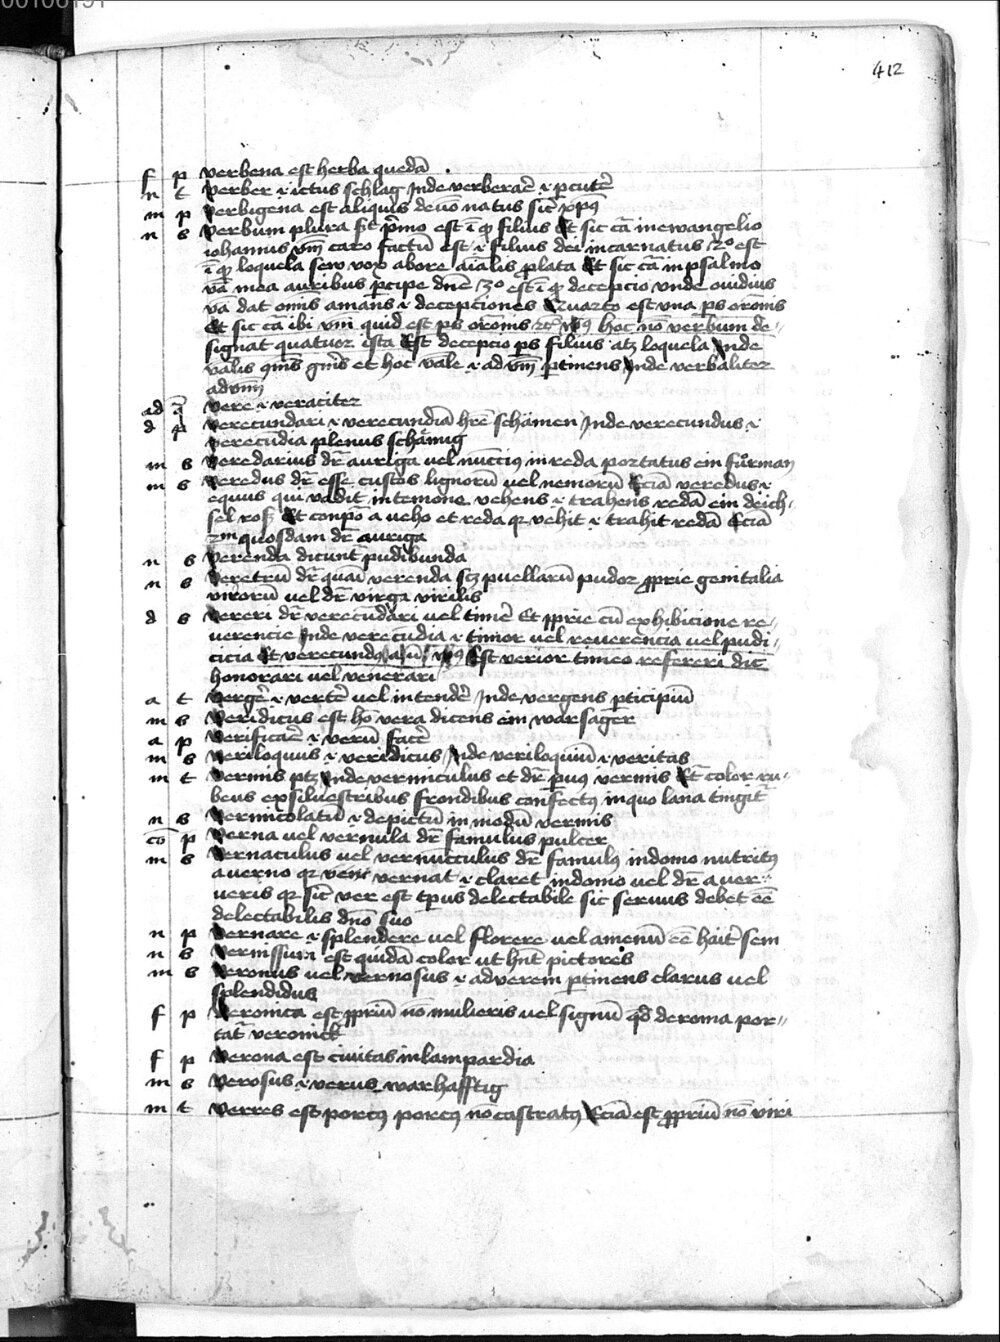 00106191
412
f p verbena est herba quedā
n t Verber ⁊ ictus schlag Inde verberaē ⁊ ꝑcutē
m p Verbigena est aliquis de v̄o natus sic̄ xp̄ꝰ
n s Verbum plura sīt p̄mo est ī ꝙ filius Et sic cā in ewangelio
iohannis vm̄ caro factū est ⁊ filius dei incarnatus 2o est
ī ꝙ loquela seu vox ab ore aīalis ꝓlata Et sic cā in psalmo
va mea auribus ꝑcipe dn̄e 3o est ī ꝙ decepcio vnde ouidius
va dat om̄is amans ⁊ decepciones Quarto est vna ps orōnis
Et sic cā ibi vm̄ quid est ps orōnis rc̄ vꝰ hoc nō verbum de-
signat quatuor ista Est decepcio ps filius atz loquela Inde
valis om̄is gn̄is et hoc vale ⁊ ad vm̄ ꝑtinens Inde verbaliter
ad vm̄
ad a Vere ⁊ veraciter
d p Verecundari ⁊ verecundiā hr̄e schämen Inde verecundus ⁊
verecūdia plenus schämig
m s Veredarius dr̄ auriga vel nūcciꝰ in reda portatus ein fůrman
m s Veredus dr̄ esse custos lignorū vel nemorū Eciā veredus ⁊
equus qui vadit in temone vehens ⁊ trahens redā ein deich-
sel ross Et conpō a veho et reda qr vehit ⁊ trahit redā Eciā
2m quosdam dr̄ auriga
n s Verenda dicunt̄ pudibunda
n s Veretrū dr̄ quāi verenda sz puellarū pudor ꝓprie genitalia
virorū vel dr̄ virga virilis
d s Vereri dr̄ verecūdari vel timē Et ꝓprie cū exhibicione re-
verencie Inde verecūdia ⁊ timor vel reuerencia vel pudi-
cicia Et verecundꝰ a ū vꝰ Est verior timeo refereri dic
honorari vel venerari
a t Vergē ⁊ vertē vel intendē Inde vergens ꝑticipiū
m s Veridicus est hō vera dicens ein warsager
a p Verificaē ⁊ verū facē
m s Veriloquus ⁊ veridicus Inde veriloquiū ⁊ veritas
m t Vermis ptz Inde vermiculus et dr̄ ꝑuꝰ vermis Et̄ color ru-
beus ex siluestribus frondibus confectꝰ in quo lana tingit̄
n s Vermicolatū ⁊ depictū in modū vermis
cō p Verna vel vernula dr̄ famulus pulcer
m s Vernaculus vel vernucculus dr̄ famulꝰ in domo nutritꝰ
a verno qr vernat ⁊ claret in domo vel dr̄ a ver-
veris qr sic̄ ver est tpus delectabile sic seruus debet eē
delectabilis dn̄o suo
n p Vernare ⁊ splendere vel florere vel amenū eē hait̄ sein
n s Vernissium est quidā color ut hn̄t pictores
m s Veronus vel vernosus ⁊ ad verem ꝑtinens clarus vel
splendidus
f p Veronica est ꝓpriū nō mulieris vel signū qd de roma por-
tat̄ veronick
f p Verona est ciuitas in lampardia
m s Verosus ⁊ verus warhafftig
m t Verres est porcꝰ porcꝰ nō castratꝰ Eciā est ꝓpriū nō viri